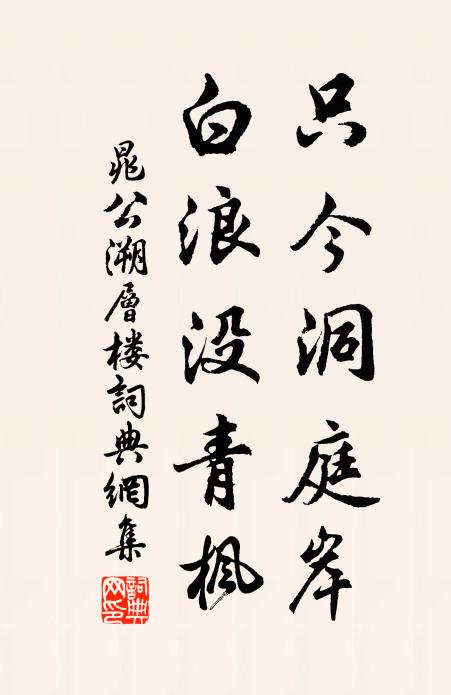 只今洞庭岸
白浪没青楓
晁公溯層楼詞典網集
詞典网印